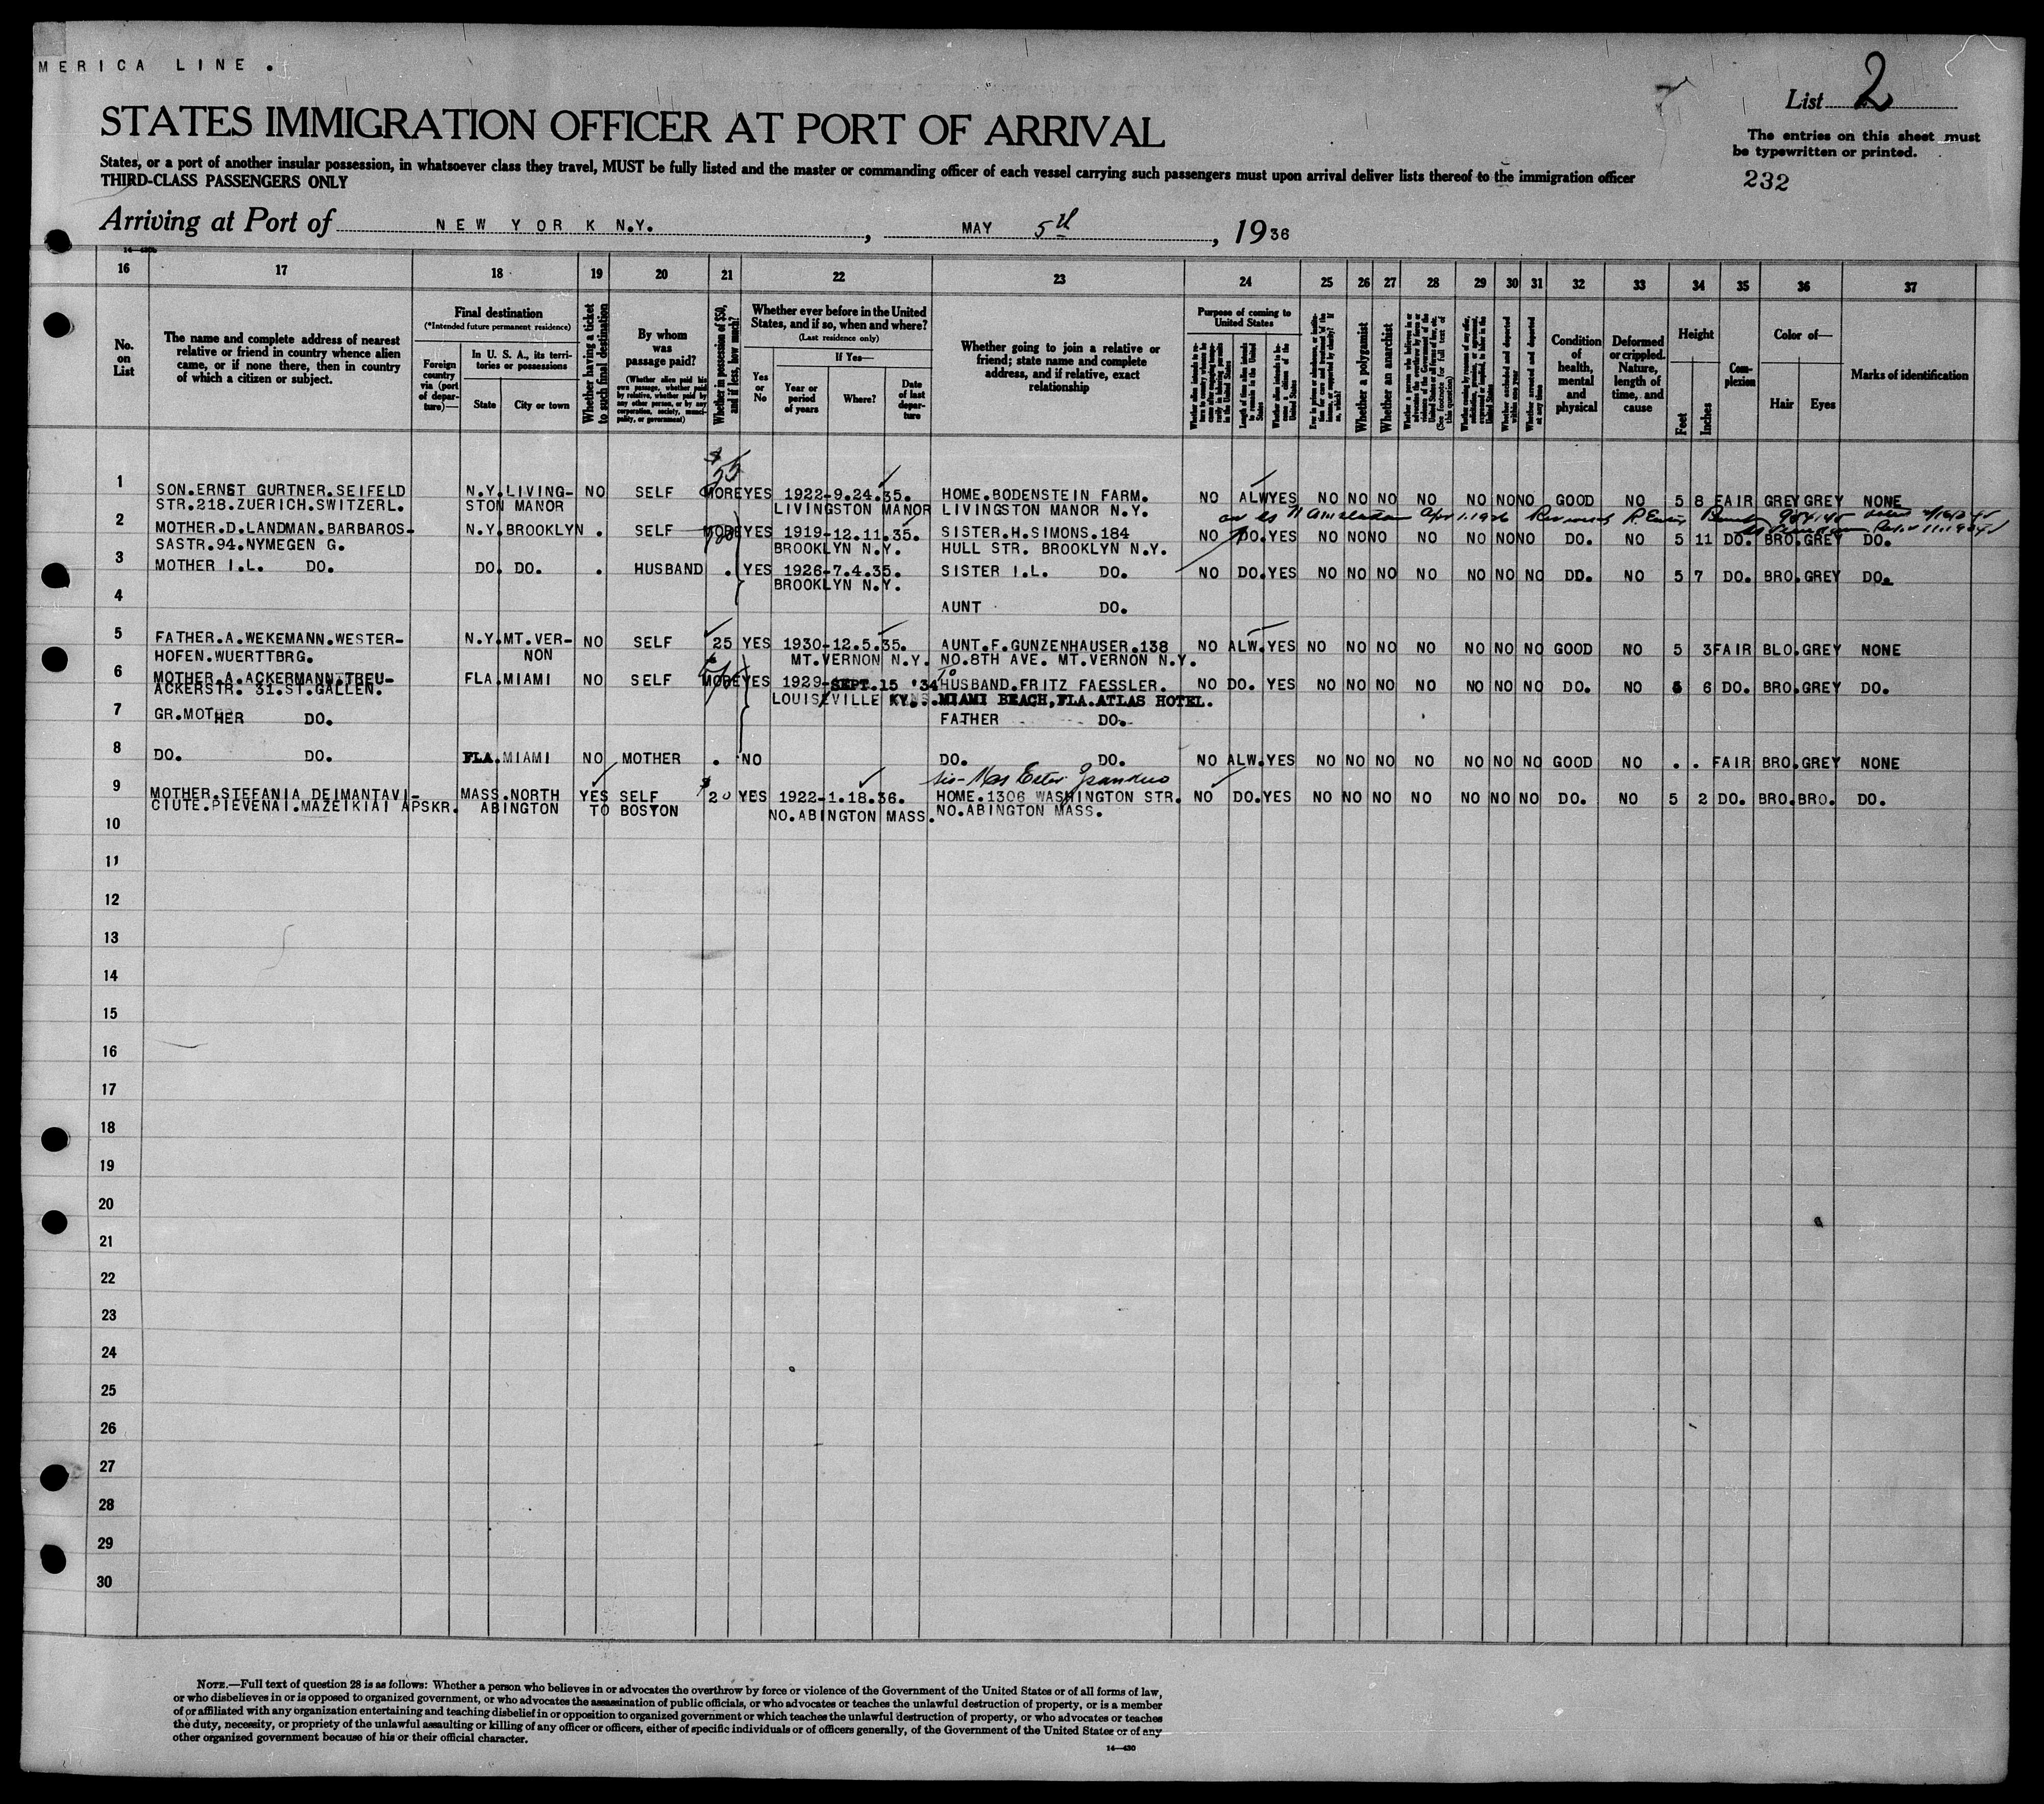 MERICA LINE.
List 2
STATES IMMIGRATION OFFICER AT PORT OF ARRIVAL
The entries on this sheet must
be typewritten or printed.
States, or a port of another insular possession, in whatsoever class they travel, MUST be fully listed and the master or commanding officer of each vessel carrying such passengers must upon arrival deliver lists thereof to the immigration officer
THIRD-CLASS PASSENGERS ONLY
232
Arriving at Port of NEW YORK N.Y., MAY 5th, 1936
16 17 18 19 20 21 22 23 24 25 26 27 28 29 30 31 32 33 34 35 36 37
No. on List
The name and complete address of nearest
relative or friend in country whence alien
came, or if none there, then in country
of which a citizen or subject.
Final destination
(*Intended future permanent residence)
Foreign country via (port of departure)—
In U. S. A., its territories or possessions
State
City or town
Whether having a ticket to such final destination
By whom was passage paid?
(Whether alien paid his own passage, whether paid by relative, whether paid by any other person, or by any corporation, society, municipality, or government)
Whether in possession of $50, and if less, how much?
Whether ever before in the United States, and if so, when and where?
(Last residence only)
Yes or No
If Yes—
Year or period of years
Where?
Date of last departure
Whether going to join a relative or
friend; state name and complete
address, and if relative, exact
relationship
Purpose of coming to United States
Length of time alien intends to remain in the United States
Whether a polygamist
Whether an anarchist
Whether arrested and deported at any time
Condition of health, mental and physical
Deformed or crippled. Nature, length of time, and cause
Height
Feet
Inches
Complexion
Color of—
Hair
Eyes
Marks of identification
1 SON.ERNST GURTNER.SEIFELD N.Y. LIVING- NO SELF MORE YES 1922-9.24.35. HOME.BODENSTEIN FARM. NO ALW YES NO NO NO NO NO NO NO GOOD NO 5 8 FAIR GREY GREY NONE
STR.218.ZUERICH.SWITZERL. STON MANOR LIVINGSTON MANOR LIVINGSTON MANOR N.Y.
2 MOTHER.D.LANDMAN.BARBAROS- N.Y. BROOKLYN . SELF MORE YES 1919-12.11.35. SISTER.H.SIMONS.184 NO DO. YES NO NO NO NO NO NO NO DO. NO 5 11 DO. BRO. GREY DO.
SASTR.94.NYMEGEN G. BROOKLYN N.Y. HULL STR. BROOKLYN N.Y.
3 MOTHER I.L. DO. DO. DO. . HUSBAND . YES 1926-7.4.35. SISTER I.L. DO. NO DO. YES NO NO NO NO NO NO NO DO. NO 5 7 DO. BRO. GREY DO.
BROOKLYN N.Y.
4 AUNT DO.
5 FATHER.A.WEKEMANN.WESTER- N.Y. MT.VER- NO SELF 25 YES 1930-12.5.35. AUNT.F.GUNZENHAUSER.138 NO ALW. YES NO NO NO NO NO NO NO GOOD NO 5 3 FAIR BLO. GREY NONE
HOFEN.WUERTTBRG. NON MT.VERNON N.Y. NO.8TH AVE. MT.VERNON N.Y.
6 MOTHER.A.ACKERMANN.TREU- FLA. MIAMI NO SELF MORE YES 1929- SEPT.15 '34 To HUSBAND.FRITZ FAESSLER. NO DO. YES NO NO NO NO NO NO NO DO. NO 5 6 DO. BRO. GREY DO.
ACKERSTR. 31.ST.GALLEN. LOUISEVILLE KY. MIAMI BEACH, FLA. ATLAS HOTEL.
7 GR.MOTHER DO. FATHER DO.
8 DO. DO. FLA. MIAMI NO MOTHER . NO DO. DO. NO ALW. YES NO NO NO NO NO NO NO GOOD NO . . FAIR BRO. GREY NONE
9 MOTHER.STEFANIA DEIMANTAVI- MASS. NORTH YES SELF $20 YES 1922-1.18.36. HOME.1306 WASHINGTON STR. NO DO. YES NO NO NO NO NO NO NO DO. NO 5 2 DO. BRO. BRO. DO.
CIUTE.PIEVENAI.MAZEIKIAI APSKR. ABINGTON TO BOSTON NO.ABINGTON MASS. NO.ABINGTON MASS.
10
11
12
13
14
15
16
17
18
19
20
21
22
23
24
25
26
27
28
29
30
NOTE.—Full text of question 28 is as follows: Whether a person who believes in or advocates the overthrow by force or violence of the Government of the United States or of all forms of law,
or who disbelieves in or is opposed to organized government, or who advocates the assassination of public officials, or who advocates or teaches the unlawful destruction of property, or is a member
of or affiliated with any organization entertaining and teaching disbelief in or opposition to organized government or which teaches the unlawful destruction of property, or who advocates or teaches
the duty, necessity, or propriety of the unlawful assaulting or killing of any officer or officers, either of specific individuals or of officers generally, of the Government of the United States or of any
other organized government because of his or their official character.
14—430